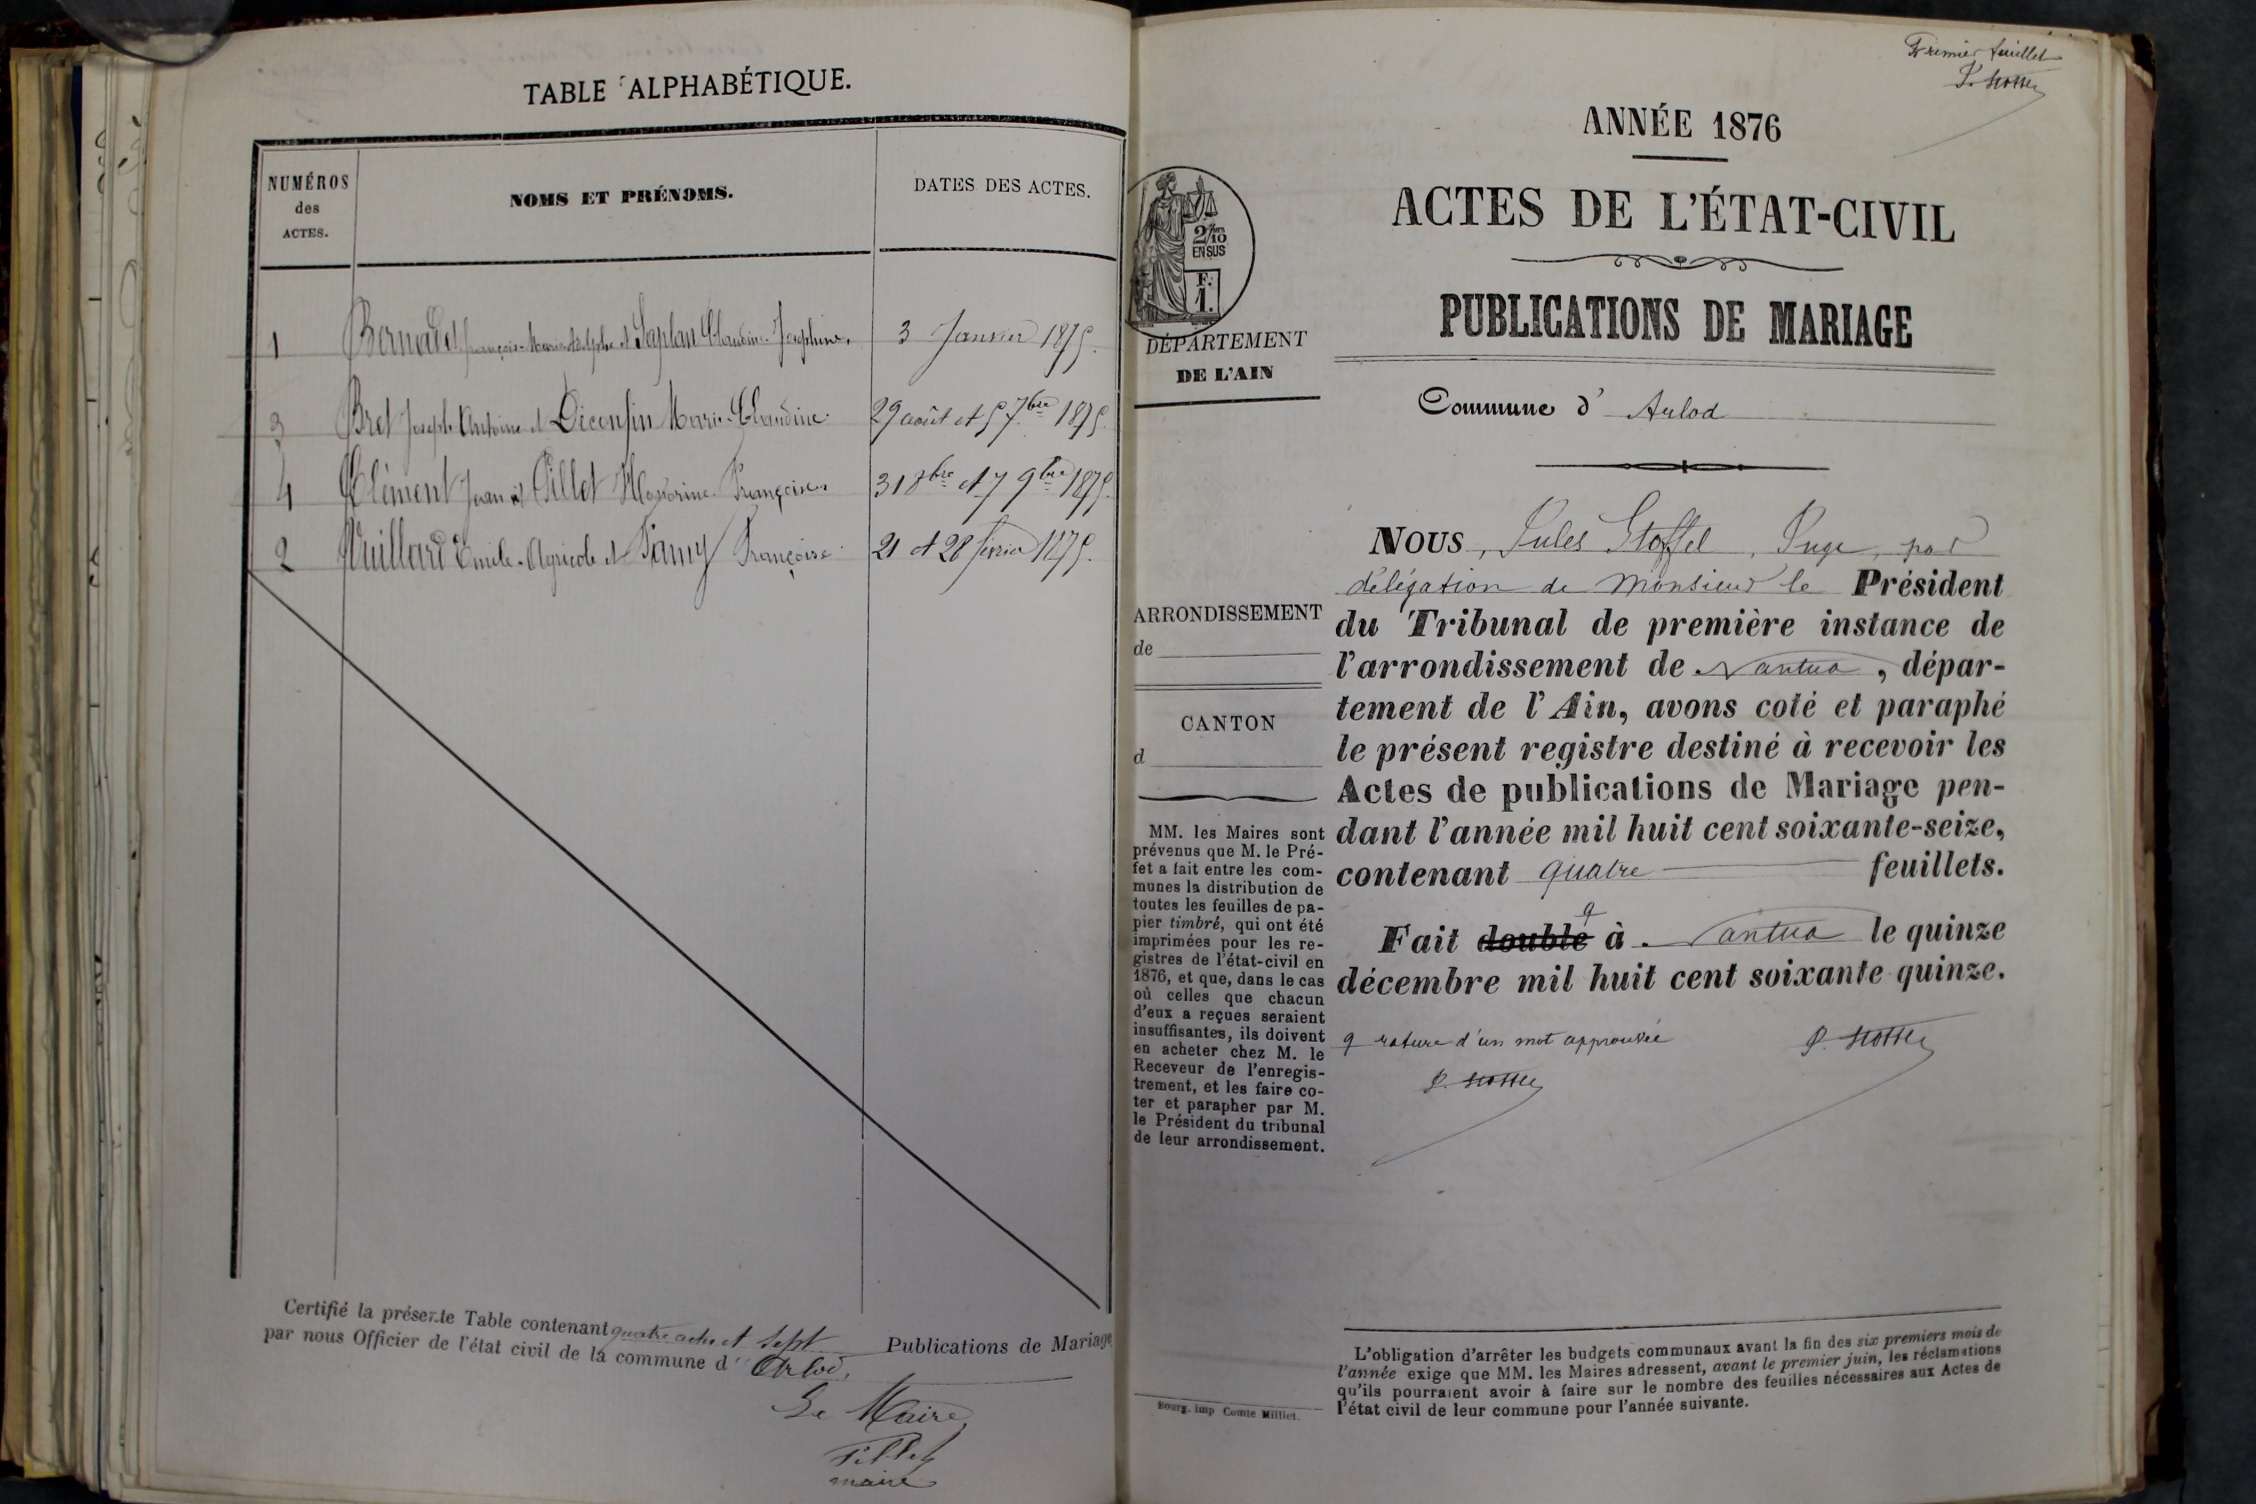 TABLE ALPHABÉTIQUE.
NUMÉROS
des
ACTES.
NOMS ET PRÉNOMS.
DATES DES ACTES.
1 Bernadet françois-Marie-Adolphe et Laplan Claudine-Josephine. 3 Janvier 1875.
3 Bret Joseph Antoine et Diconfin Marie Claudine 29 août et 5 7bre 1875.
4 Clément Jean et Pillet Françoise. 31 8bre et 7 9bre 1875.
2 Vuillard Emile-Agricole et Françoise 21 et 28 février 1875.
Certifié la présente Table contenant quatre actes et sept Publications de Mariage
par nous Officier de l'état civil de la commune d' Arlod.
Le Maire
Pillet
maire
Premier feuillet
J. Stoffel
ANNÉE 1876
ACTES DE L'ÉTAT-CIVIL
PUBLICATIONS DE MARIAGE
2/10
EN SUS
F.
1.
DÉPARTEMENT
DE L'AIN
Commune d' Arlod
ARRONDISSEMENT
de
CANTON
d
MM. les Maires sont
prévenus que M. le Pré-
fet a fait entre les com-
munes la distribution de
toutes les feuilles de pa-
pier timbré, qui ont été
imprimées pour les re-
gistres de l'état-civil en
1876, et que, dans le cas
où celles que chacun
d'eux a reçues seraient
insuffisantes, ils doivent
en acheter chez M. le
Receveur de l'enregis-
trement, et les faire co-
ter et parapher par M.
le Président du tribunal
de leur arrondissement.
Nous, Jules Stoffel, Juge, par
délégation de Monsieur le Président
du Tribunal de première instance de
l'arrondissement de Nantua, dépar-
tement de l'Ain, avons coté et paraphé
le présent registre destiné à recevoir les
Actes de publications de Mariage pen-
dant l'année mil huit cent soixante-seize,
contenant quatre feuillets.
Fait double à Nantua le quinze
décembre mil huit cent soixante quinze.
rature d'un mot approuvée
J. Stoffel
J. Stoffel
L'obligation d'arrêter les budgets communaux avant la fin des six premiers mois de
l'année exige que MM. les Maires adressent, avant le premier juin, les réclamations
qu'ils pourraient avoir à faire sur le nombre des feuilles nécessaires aux Actes de
l'état civil de leur commune pour l'année suivante.
Bourg. imp Comte Milliet.